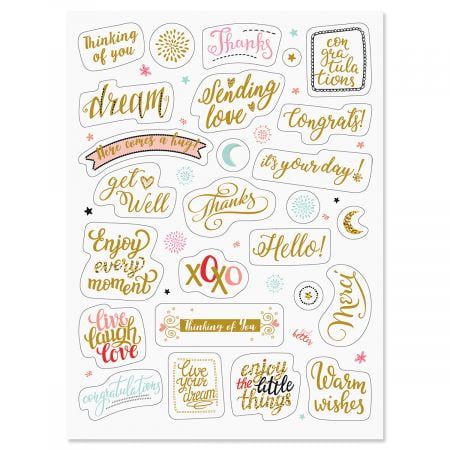 Thinking
of you
Thanks
con
gra
tula
tions
dream
Sending
love
Congrats!
Here comes a hug!
it's your day!
get
Well
Thanks
Enjoy
every
moment
XOXO
Hello!
Merci
live
laugh
love
Thinking of You
better
congratulations
Live
your
dream
enjoy
the little
things
Warm
wishes